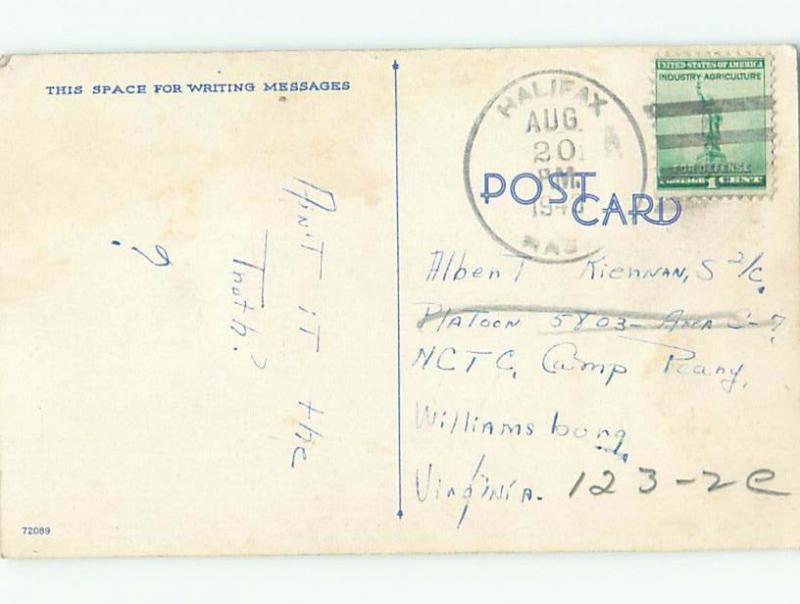 THIS SPACE FOR WRITING MESSAGES
Ain't it the
Truth?
?
72089
HALIFAX
AUG
20
PM
194
MAS
UNITED STATES OF AMERICA
INDUSTRY AGRICULTURE
FOR DEFENSE
POSTAGE 1 CENT
POST CARD
Albert Kiernan, S 2/c.
Platoon 5803- Area C-7,
NCTC, Camp Peary,
Williamsburg,
Virginia. 123-2C